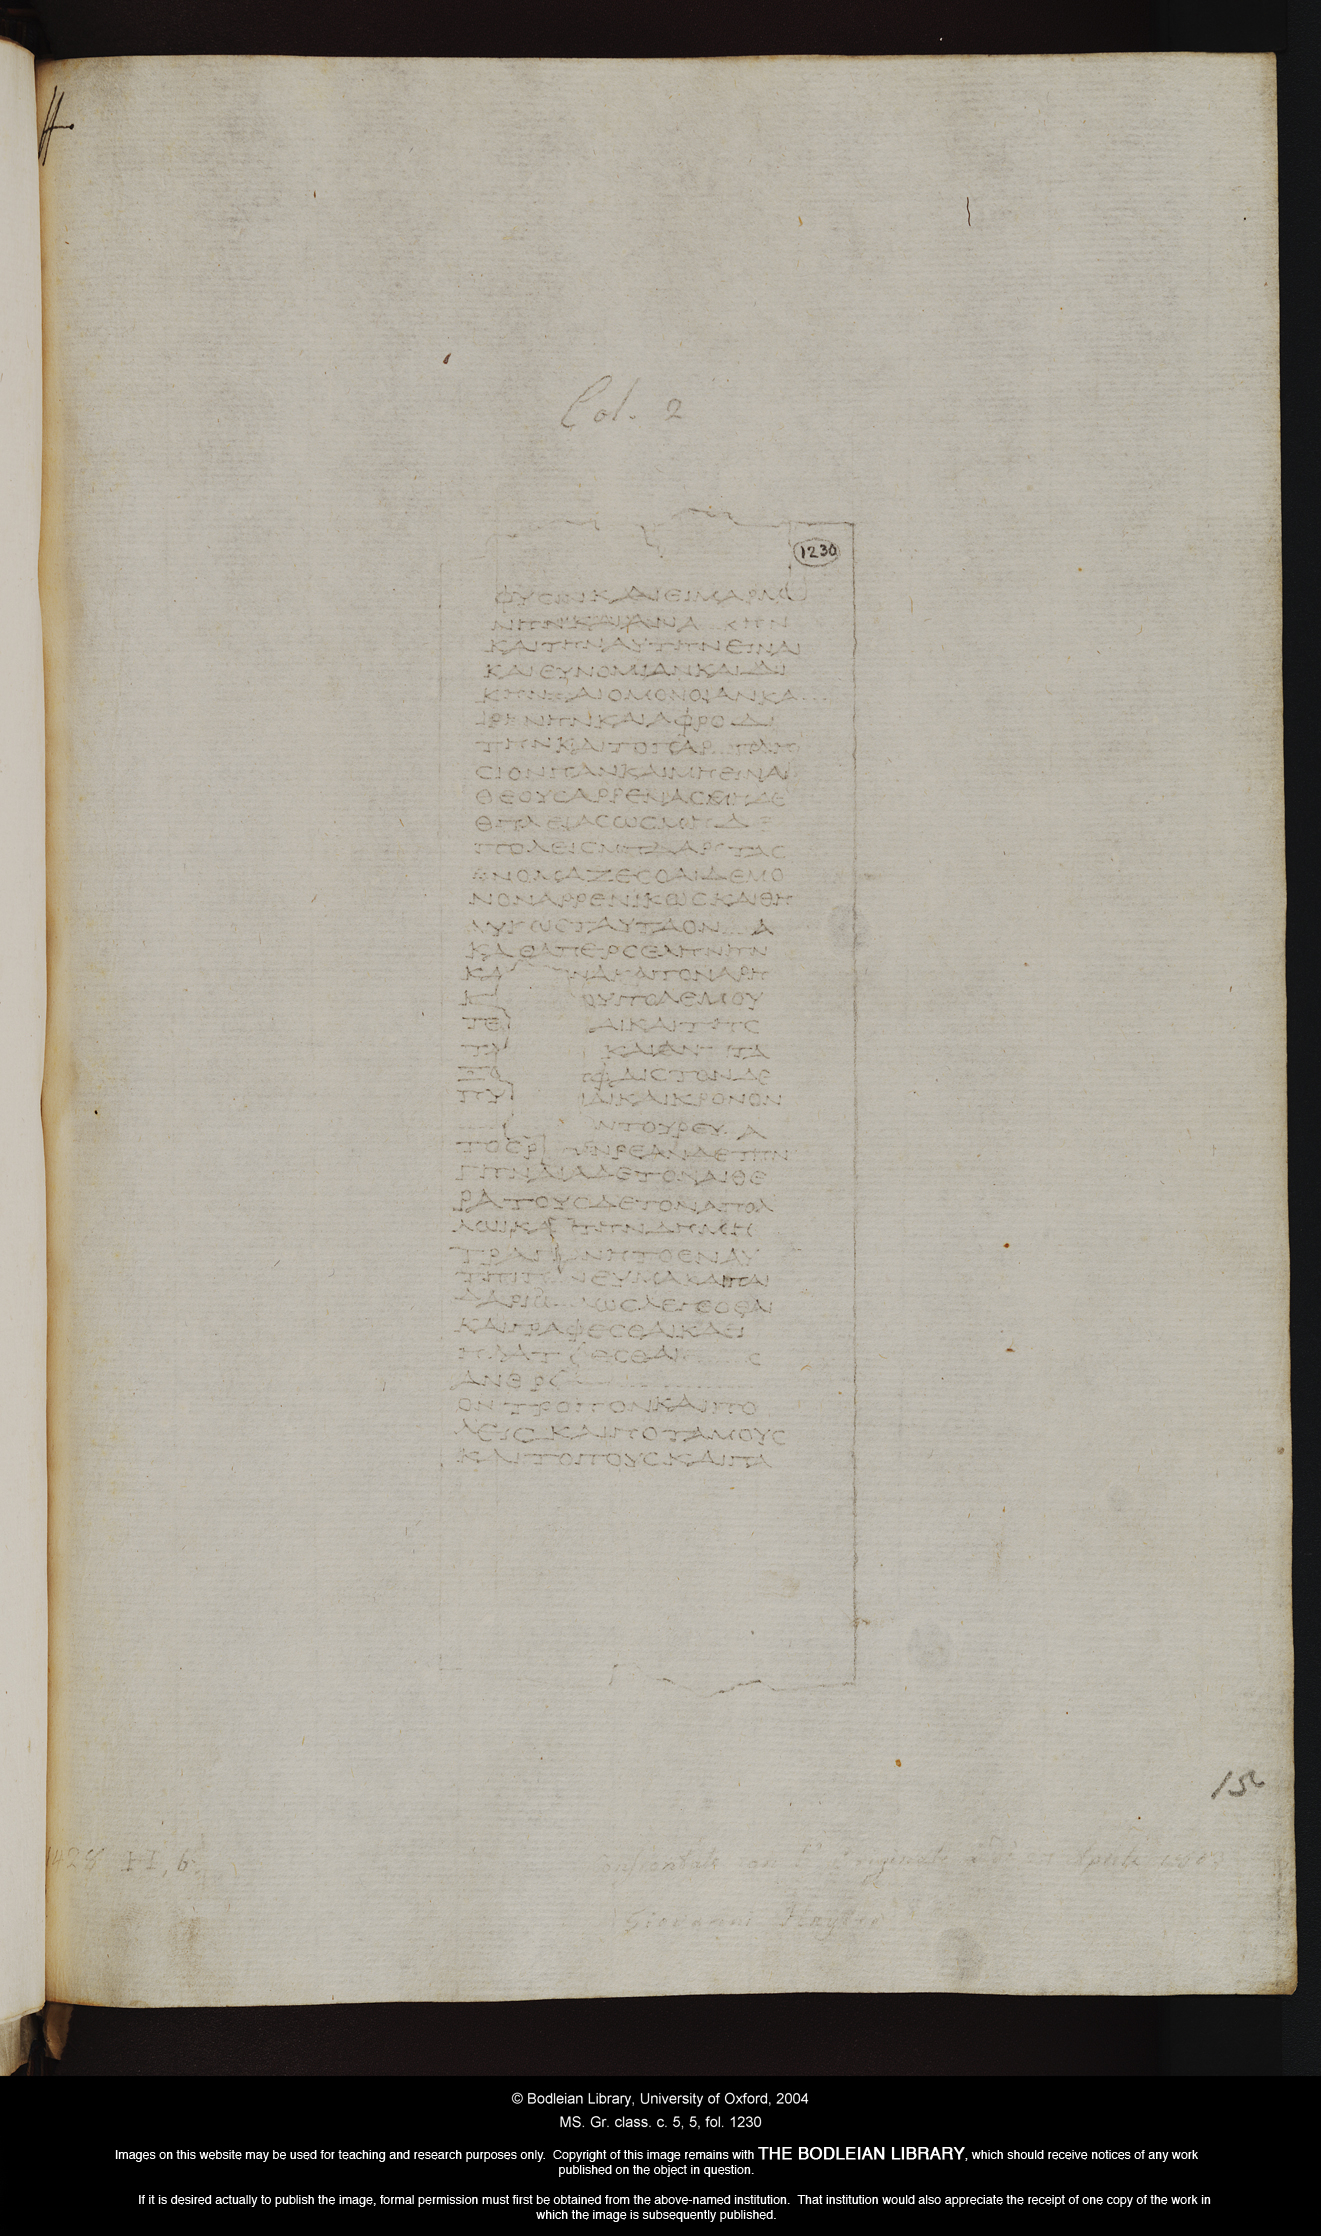 Col. 2
1230
ΦΥϹΙΝΚΑΙΕΙΜΑΡΜ
ΝΗΝΚΑΙΑΝΑ  ΚΗΝ
ΚΑΙΤΗΝΑΥΤΗΝΕΙΝΑΙ
ΚΑΙΕΥΝΟΜΙΑΝΚΑΙΔΙ
ΚΗΝΚΑΙΟΜΟΝΟΙΑΝΚΑ...
ΙΡΗΝΗΝΚΑΙΑΦΡΟΔΙ
ΤΗΝΚΑΙΤΟΠΑΡ..ΠΛΗ
ϹΙΟΝΠΑΝΚΑΙΜΗΕΙΝΑΙ
ΘΕΟΥϹΑΡΡΕΝΙΑϹΜΗΔΕ
ΘΗΛΕΙΑϹΩϹΜΗΔΕ
ΠΟΛΕΙϹΜΗΔΑΡΕΤΑϹ
ΟΝΟΜΑΖΕϹΘΑΙΔΕΜΟ
ΝΟΝΑΡΡΕΝΙΚΩϹΚΑΙΘΗ
ΛΥΚΩϹΤΑΥΤΑΟΝ...Α
ΚΑΘΑΠΕΡϹΕΛΗΝΗΝ
ΚΑ ΗΝΑΚΑΙΤΟΝΑΡΗ
Κ ΟΥΠΟΛΕΜΟΥ
ΤΕ ΑΙΚΑΙΤΗϹ
ΤΑ ΚΑΙΑΝΤΙΤΑ
ΞΩ ΗΦΑΙϹΤΟΝΔΕ
ΠΥ ΙΑΙΚΑΙΚΡΟΝΟΝ
ΝΤΟΥΡΕΥ.Α
ΤΟϹΡ ΗΝΡΕΑΝΔΕΤΗΝ
ΓΗΝΔΙΑΔΕΤΟΝΑΙΘΕ
ΡΑΤΟΥϹΔΕΤΟΝΑΠΟΛ
ΛΩΙΚΑ ΤΗΝΔΗΜΗ
ΤΡΑΓ ΝΗΤΟΕΝΑΥ
ΤΗΙΠΝΕΥΜΑΚΑΙΠΑΙ
ΔΑΡΙΩ...ΩϹΛΕΓΕϹΘΑΙ
ΚΑΙΓΡΑΦΕϹΘΑΙΚΑΙ
ΠΛΑΤ ΕϹΘΑΙ ϹΘ
ΑΝΘΡ
ΟΝΤΡΟΠΟΝΚΑΙΠΟ
ΛΕΙϹΚΑΙΠΟΤΑΜΟΥϹ
ΚΑΙΤΟΠΟΥϹΚΑΙΠΑ
15
1428 II, 6
Giovanni Hayter
© Bodleian Library, University of Oxford, 2004
MS. Gr. class. c. 5, 5, fol. 1230
Images on this website may be used for teaching and research purposes only. Copyright of this image remains with THE BODLEIAN LIBRARY, which should receive notices of any work
published on the object in question.
If it is desired actually to publish the image, formal permission must first be obtained from the above-named institution. That institution would also appreciate the receipt of one copy of the work in
which the image is subsequently published.